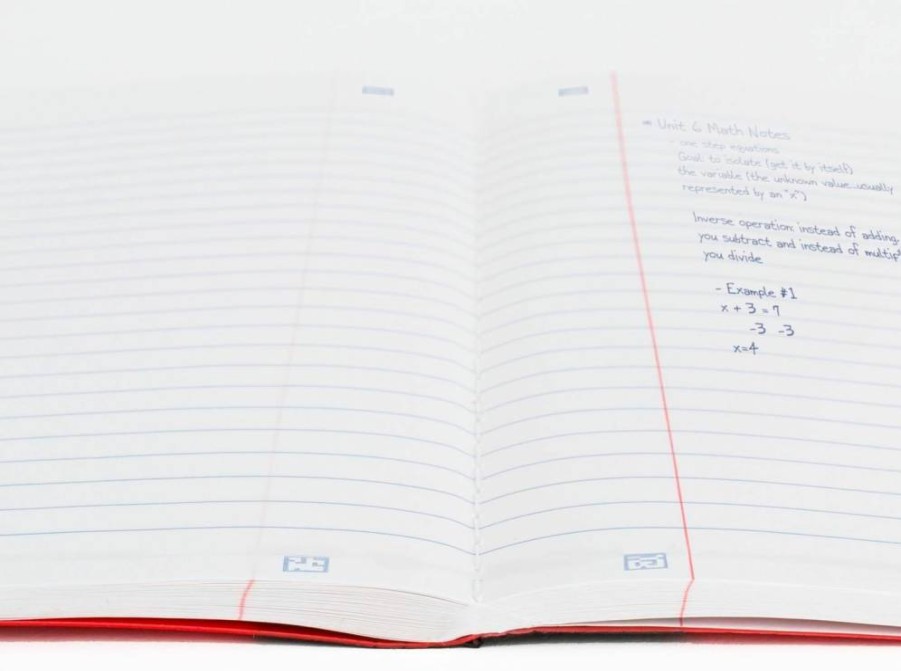 - Unit 6 Math Notes
- one step equations
Goal: to isolate (get it by itself)
the variable (the unknown value usually
represented by an "x")
Inverse operation: instead of adding,
you subtract and instead of multip
you divide
- Example #1
x + 3 = 7
-3 -3
x=4